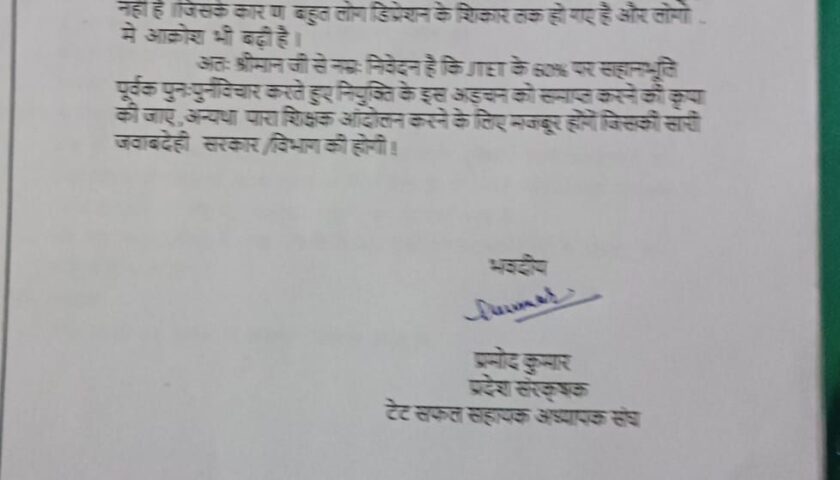 नहीं है ।जिसके कार ण बहुत लोग डिप्रेशन के शिकार तक हो गए है और लोगो
मे आक्रोश भी बढ़ी है ।
अतः श्रीमान जी से नम्रः निवेदन है कि JTET के 60% पर सहानभूति
पूर्वक पुनःपुर्नविचार करते हुए नियुक्ति के इस अड़चन को समाप्त करने की कृपा
की जाए ,अन्यथा पारा शिक्षक आंदोलन करने के लिए मजबूर होगें जिसकी सारी
जवाबदेही सरकार /विभाग की होगी !
भवदीय
प्रमोद कुमार
प्रदेश संरक्षक
टेट सफल सहायक अध्यापक संघ